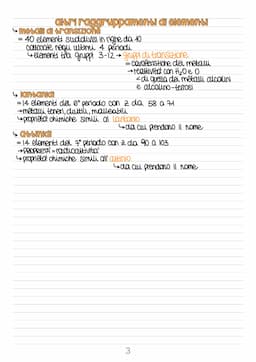 altri raggruppamenti di elementi
↳ metalli di transizione
= 40 elementi suddivisi in righe da 10
collocate negli ultimi 4 periodi
↳ elementi tra gruppi 3-12 → gruppi di transizione
= caratteristiche dei metalli
→ reattività con H₂O e O
< di quella dei metalli alcalini
e alcalino-terrosi
↳ lantanidi
= 14 elementi del 6° periodo con Z da 58 a 71
→ metalli teneri, duttili, malleabili
↳ proprietà chimiche simili al lantanio
↳ da cui prendono il nome
↳ attinidi
= 14 elementi del 7° periodo con Z da 90 a 103
→ proprietà = radioattività
↳ proprietà chimiche simili all'attinio
↳ da cui prendono il nome
3